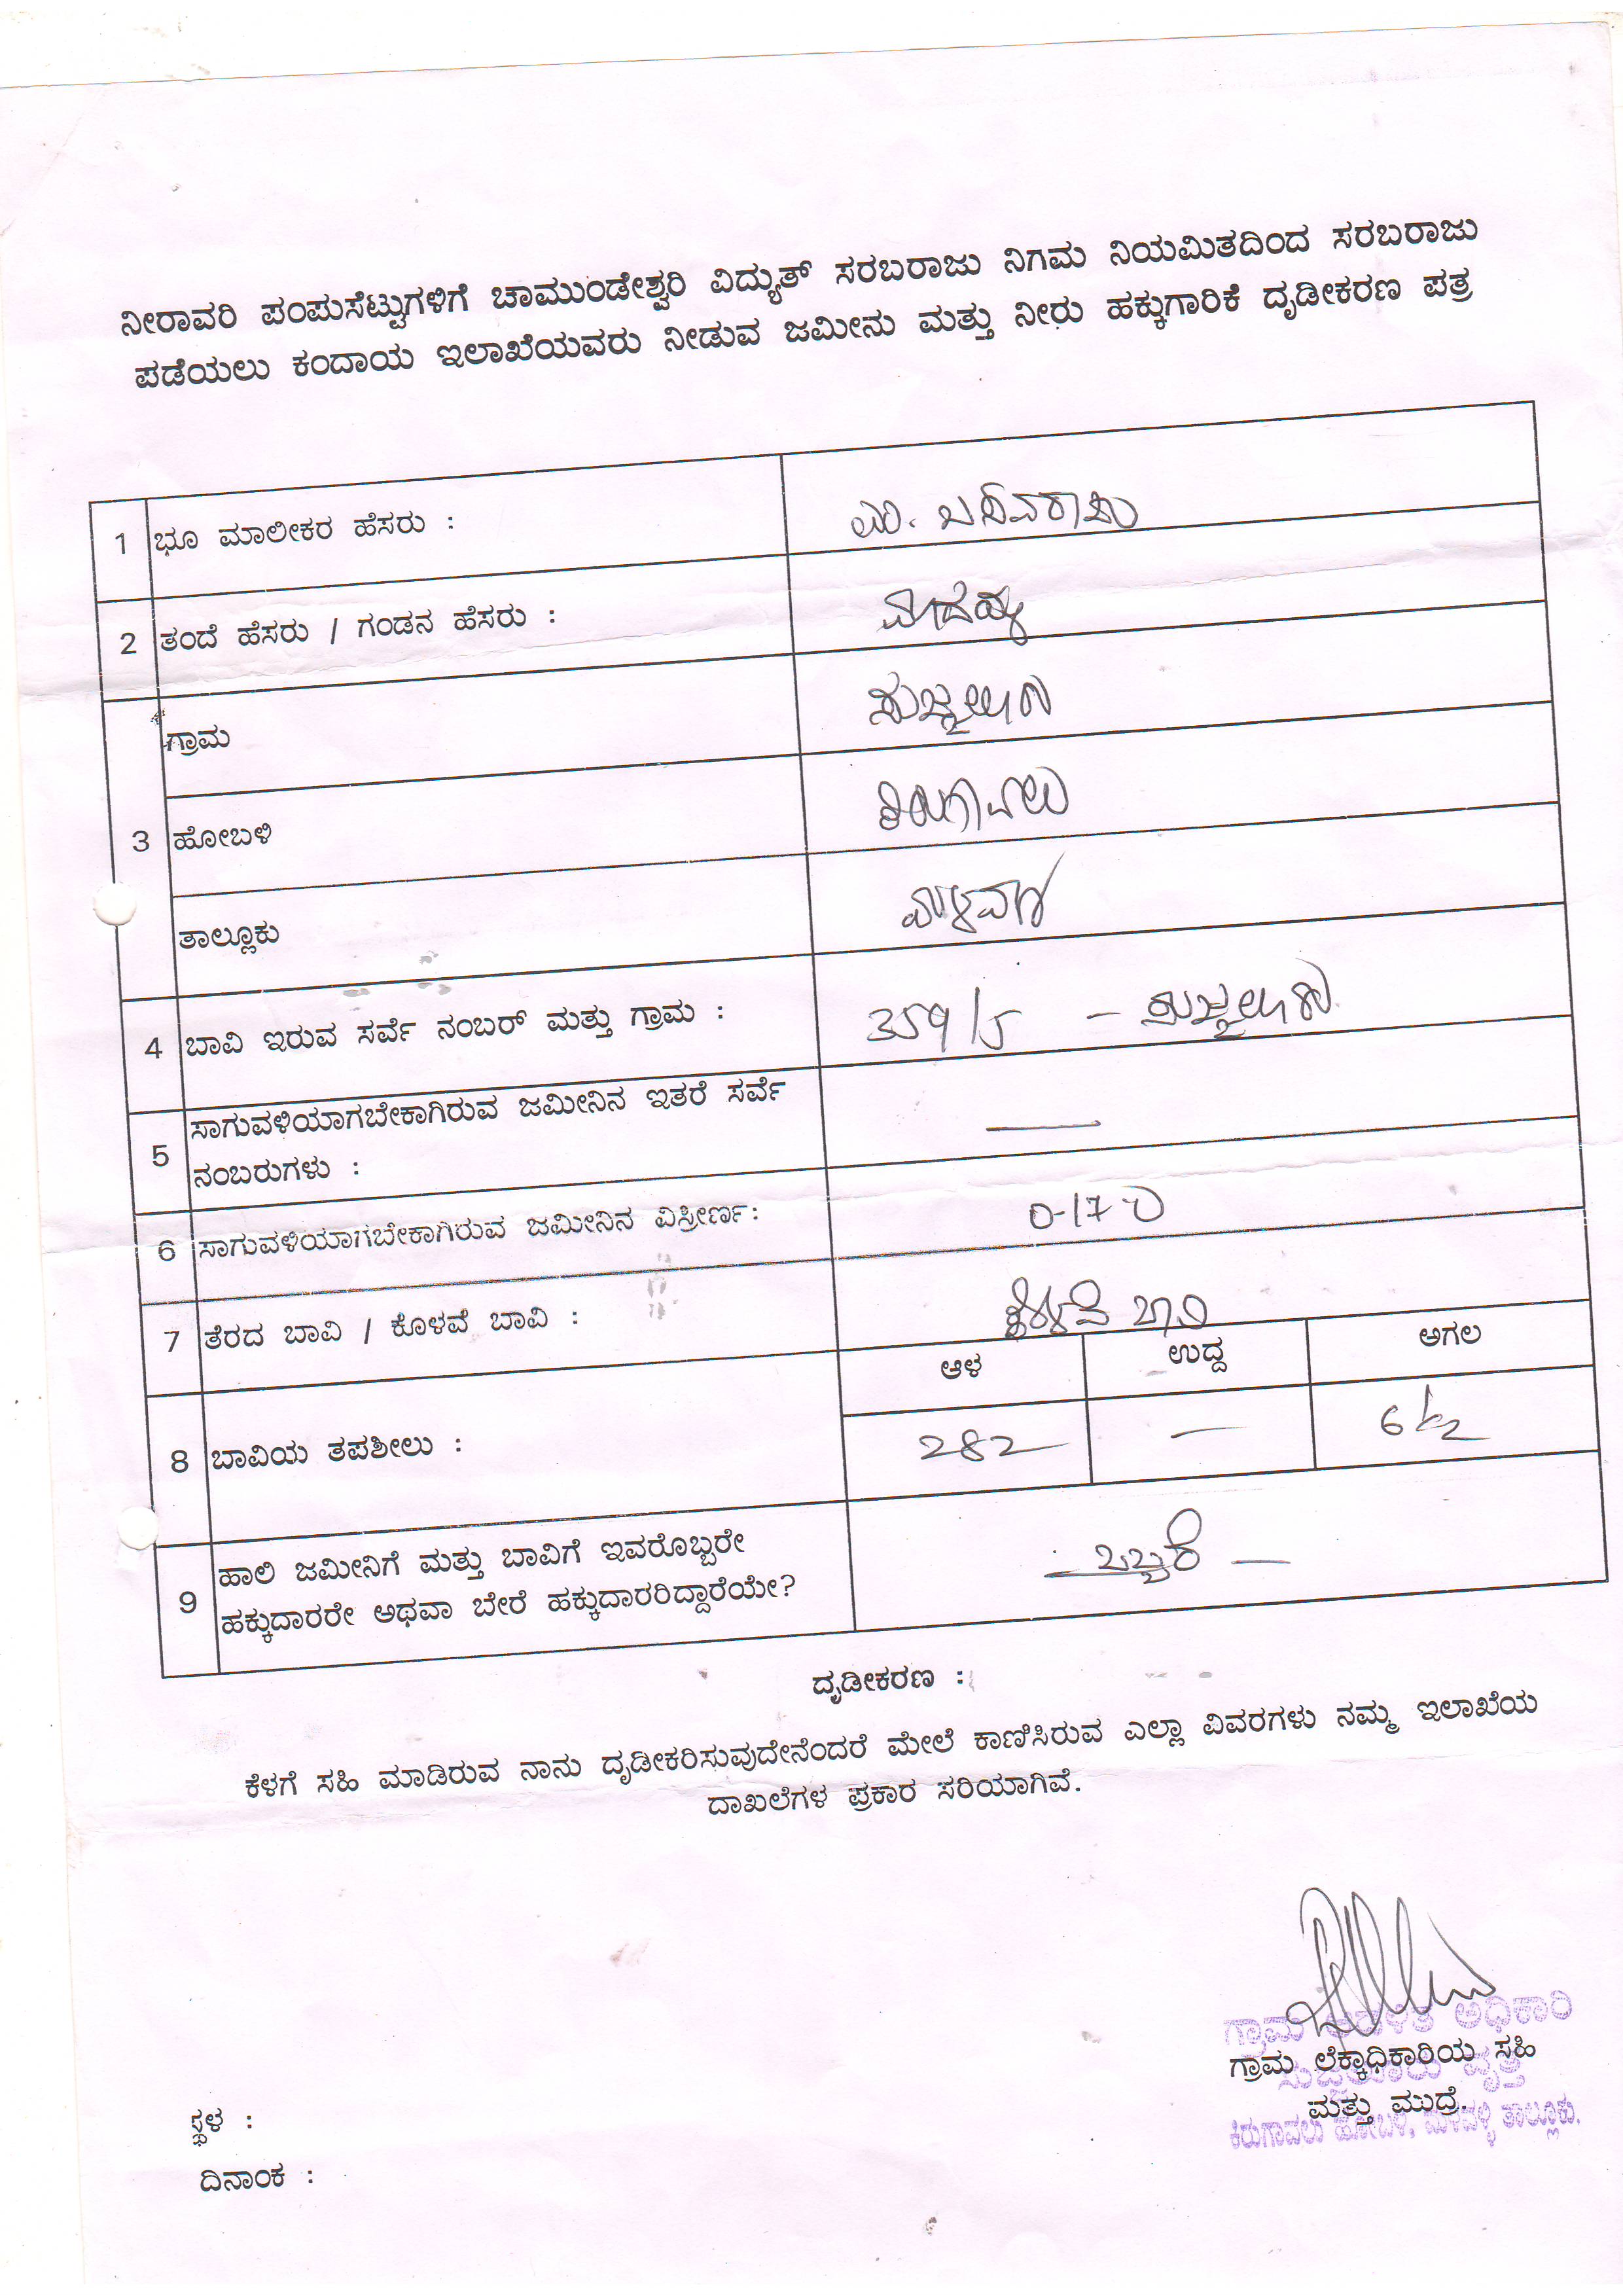 ನೀರಾವರಿ ಪಂಪುಸೆಟ್ಟುಗಳಿಗೆ ಚಾಮುಂಡೇಶ್ವರಿ ವಿದ್ಯುತ್ ಸರಬರಾಜು ನಿಗಮ ನಿಯಮಿತದಿಂದ ಸರಬರಾಜು
ಪಡೆಯಲು ಕಂದಾಯ ಇಲಾಖೆಯವರು ನೀಡುವ ಜಮೀನು ಮತ್ತು ನೀರು ಹಕ್ಕುಗಾರಿಕೆ ದೃಡೀಕರಣ ಪತ್ರ
1 ಭೂ ಮಾಲೀಕರ ಹೆಸರು : ಎಂ. ಬಸವರಾಜು
2 ತಂದೆ ಹೆಸರು / ಗಂಡನ ಹೆಸರು : ಮಾದಯ್ಯ
ಗ್ರಾಮ ಸುಜ್ಜಲೂರು
3 ಹೋಬಳಿ ಕಿರುಗಾವಲು
ತಾಲ್ಲೂಕು ಮಳವಳ್ಳಿ
4 ಬಾವಿ ಇರುವ ಸರ್ವೆ ನಂಬರ್ ಮತ್ತು ಗ್ರಾಮ : 359/5 – ಸುಜ್ಜಲೂರು
5 ಸಾಗುವಳಿಯಾಗಬೇಕಾಗಿರುವ ಜಮೀನಿನ ಇತರೆ ಸರ್ವೆ
ನಂಬರುಗಳು : —
6 ಸಾಗುವಳಿಯಾಗಬೇಕಾಗಿರುವ ಜಮೀನಿನ ವಿಸ್ರೀರ್ಣ: 0-17
7 ತೆರದ ಬಾವಿ / ಕೊಳವೆ ಬಾವಿ : ಕೊಳವೆ ಬಾವಿ
ಆಳ ಉದ್ದ ಅಗಲ
8 ಬಾವಿಯ ತಪಶೀಲು : 282 — 6 1/2
9 ಹಾಲಿ ಜಮೀನಿಗೆ ಮತ್ತು ಬಾವಿಗೆ ಇವರೊಬ್ಬರೇ
ಹಕ್ಕುದಾರರೇ ಅಥವಾ ಬೇರೆ ಹಕ್ಕುದಾರರಿದ್ದಾರೆಯೇ? – ಒಬ್ಬರೆ –
ದೃಡೀಕರಣ :
ಕೆಳಗೆ ಸಹಿ ಮಾಡಿರುವ ನಾನು ದೃಡೀಕರಿಸುವುದೇನೆಂದರೆ ಮೇಲೆ ಕಾಣಿಸಿರುವ ಎಲ್ಲಾ ವಿವರಗಳು ನಮ್ಮ ಇಲಾಖೆಯ
ದಾಖಲೆಗಳ ಪ್ರಕಾರ ಸರಿಯಾಗಿವೆ.
ಗ್ರಾಮ ಆಡಳಿತ ಅಧಿಕಾರಿ
ಗ್ರಾಮ ಲೆಕ್ಕಾಧಿಕಾರಿಯ ಸಹಿ
ಸುಜ್ಜಲೂರು ವೃತ್ತ
ಮತ್ತು ಮುದ್ರೆ.
ಕಿರುಗಾವಲು ಹೋಬಳಿ, ಮಳವಳ್ಳಿ ತಾಲ್ಲೂಕು.
ಸ್ಥಳ :
ದಿನಾಂಕ :